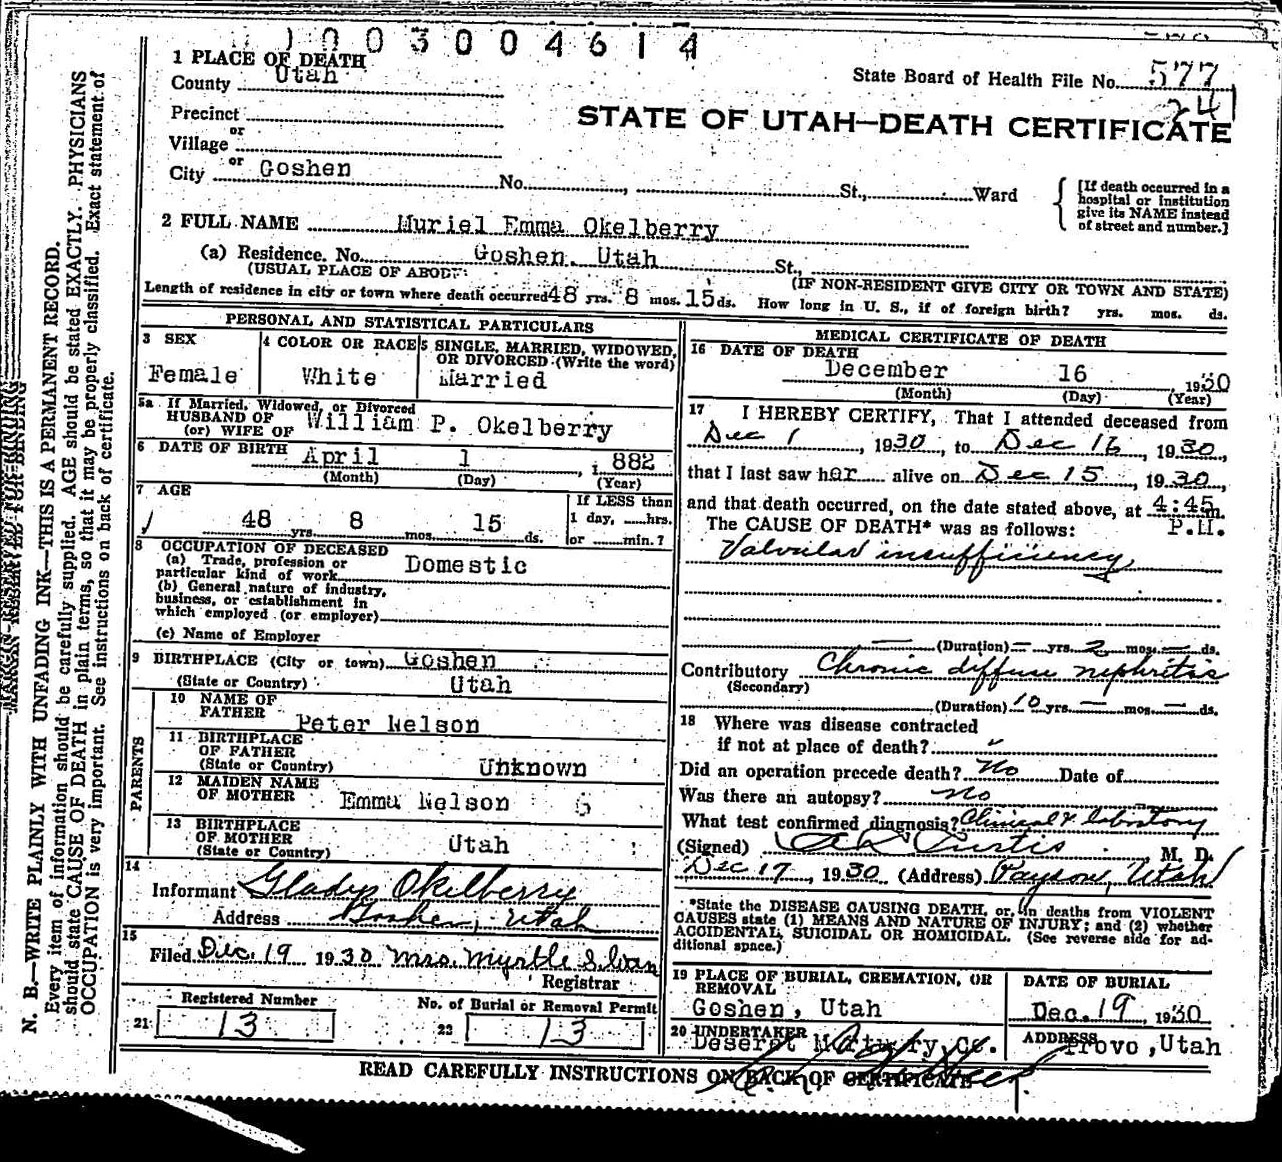 003004614
1 PLACE OF DEATH
County Utah
State Board of Health File No. 577
241
Precinct
or
Village
STATE OF UTAH—DEATH CERTIFICATE
or
City Goshen No. , St., Ward
[If death occurred in a hospital or institution give its NAME instead of street and number.]
2 FULL NAME Muriel Emma Okelberry
(a) Residence. No. Goshen. Utah St.,
(USUAL PLACE OF ABODE (IF NON-RESIDENT GIVE CITY OR TOWN AND STATE)
Length of residence in city or town where death occurred 48 yrs. 8 mos. 15 ds. How long in U. S., if of foreign birth? yrs. mos. ds.
PERSONAL AND STATISTICAL PARTICULARS
3 SEX
Female
4 COLOR OR RACE
White
5 SINGLE, MARRIED, WIDOWED, OR DIVORCED (Write the word)
Married
5a If Married, Widowed, or Divorced
HUSBAND OF
(or) WIFE OF William P. Okelberry
6 DATE OF BIRTH April 1 , 1882
(Month) (Day) (Year)
7 AGE
48 yrs. 8 mos. 15 ds.
If LESS than
1 day, hrs.
or min.?
8 OCCUPATION OF DECEASED
(a) Trade, profession or
particular kind of work Domestic
(b) General nature of industry,
business, or establishment in
which employed (or employer)
(c) Name of Employer
9 BIRTHPLACE (City or town) Goshen
(State or Country) Utah
PARENTS
10 NAME OF
FATHER Peter Nelson
11 BIRTHPLACE
OF FATHER
(State or Country) Unknown
12 MAIDEN NAME
OF MOTHER Emma Nelson G
13 BIRTHPLACE
OF MOTHER
(State or Country) Utah
14
Informant Gladys Okelberry
Address Goshen, Utah
15
Filed Dec. 19 1930 Mrs. Myrtle
Registrar
Registered Number
21 13
No. of Burial or Removal Permit
22 13
MEDICAL CERTIFICATE OF DEATH
16 DATE OF DEATH
December 16 , 1930
(Month) (Day) (Year)
17 I HEREBY CERTIFY, That I attended deceased from
Dec 1 , 1930, to Dec 16, 1930,
that I last saw her alive on Dec 15, 1930,
and that death occurred, on the date stated above, at 4:45 m.
The CAUSE OF DEATH* was as follows: P.M.
Valvular insufficiency
— (Duration) — yrs. 2 mos. — ds.
Contributory Chronic diffuse nephritis
(Secondary)
(Duration) 10 yrs. — mos. — ds.
18 Where was disease contracted
if not at place of death?
Did an operation precede death? No Date of
Was there an autopsy? No
What test confirmed diagnosis? Clinical & labortory
(Signed) Curtis M. D.
Dec 17, 1930 (Address) Payson, Utah
*State the DISEASE CAUSING DEATH, or, in deaths from VIOLENT
CAUSES state (1) MEANS AND NATURE OF INJURY; and (2) whether
ACCIDENTAL, SUICIDAL OR HOMICIDAL. (See reverse side for ad-
ditional space.)
19 PLACE OF BURIAL, CREMATION, OR
REMOVAL
Goshen, Utah
DATE OF BURIAL
Dec. 19, 1930
20 UNDERTAKER
Deseret Mortuary, Co.
ADDRESS
Provo, Utah
READ CAREFULLY INSTRUCTIONS ON BACK OF CERTIFICATE
MARGIN RESERVED FOR BINDING
N. B.—WRITE PLAINLY WITH UNFADING INK—THIS IS A PERMANENT RECORD.
Every item of information should be carefully supplied. AGE should be stated EXACTLY. PHYSICIANS
should state CAUSE OF DEATH in plain terms, so that it may be properly classified. Exact statement of
OCCUPATION is very important. See instructions on back of certificate.